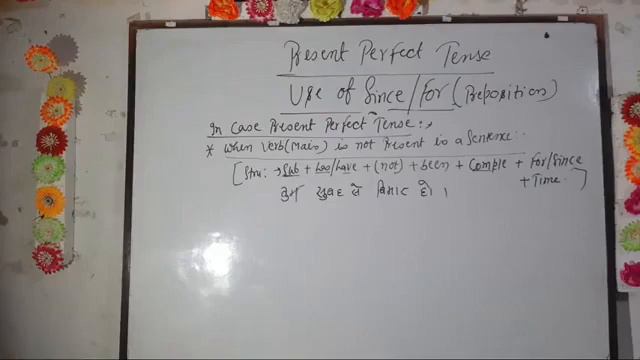 Present Perfect Tense
Use of Since/For (Preposition)
In Case Present Perfect Tense :→
* When Verb(Main) is not Present is a Sentence :
[Stru: → Sub + has/have + (not) + been + Comple + For/Since
+ Time. ]
तुम सुबह से बिमार हो।